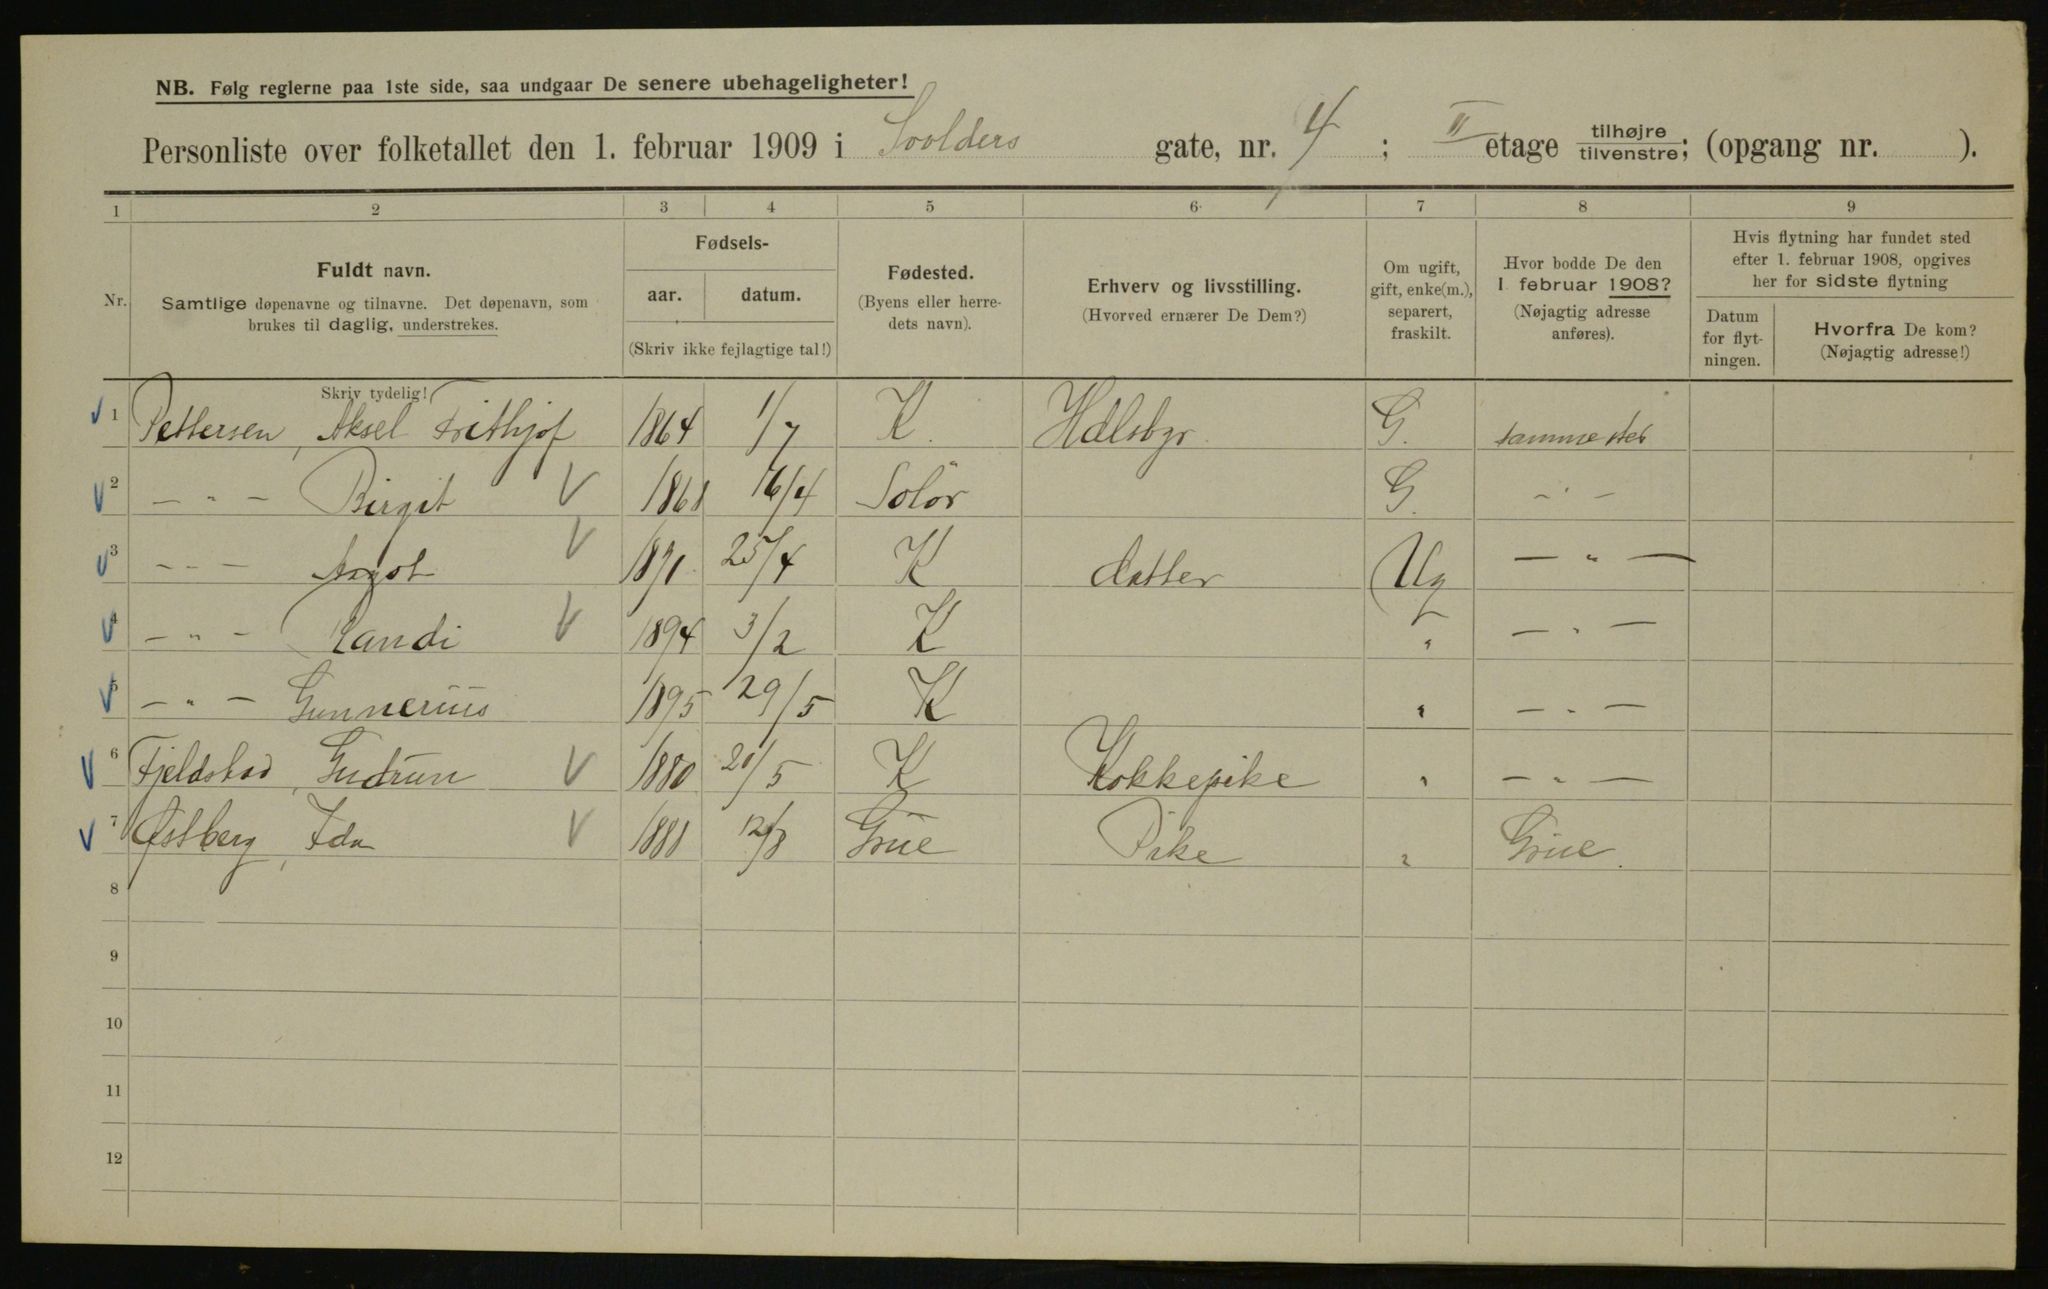 NB. Følg reglerne paa 1ste side, saa undgaar De senere ubehageligheter!
Personliste over folketallet den 1. februar 1909 i Svolders gate, nr. 4; II etage tilhøjre tilvenstre; (opgang nr. ).
1 2 3 4 5 6 7 8 9
Nr.
Fuldt navn.
Samtlige døpenavne og tilnavne. Det døpenavn, som
brukes til daglig, understrekes.
Skriv tydelig!
Fødsels-
aar. datum.
(Skriv ikke fejlagtige tal!)
Fødested.
(Byens eller herre-
dets navn).
Erhverv og livsstilling.
(Hvorved ernærer De Dem?)
Om ugift,
gift, enke(m.),
separert,
fraskilt.
Hvor bodde De den
1 februar 1908?
(Nøjagtig adresse
anføres).
Hvis flytning har fundet sted
efter 1. februar 1908, opgives
her for sidste flytning
Datum
for flyt-
ningen.
Hvorfra De kom?
(Nøjagtig adresse!)
1 Pettersen, Aksel Frithjof 1864 1/7 K. G. samme sted
2 — " — Birgit V 1868 16/4 Solør G. — " —
3 — " — Aagot V 1891 25/4 K datter Ug — " —
4 — " — Randi V 1894 3/2 K " — " —
5 — " — Gunnerius 1895 29/5 K " — " —
6 Fjeldstad, Gudrun V 1880 20/5 K Kokkepike " — " —
7 Østberg, Ida V 1888 12/8 Grue Pike " Grue.
8
9
10
11
12